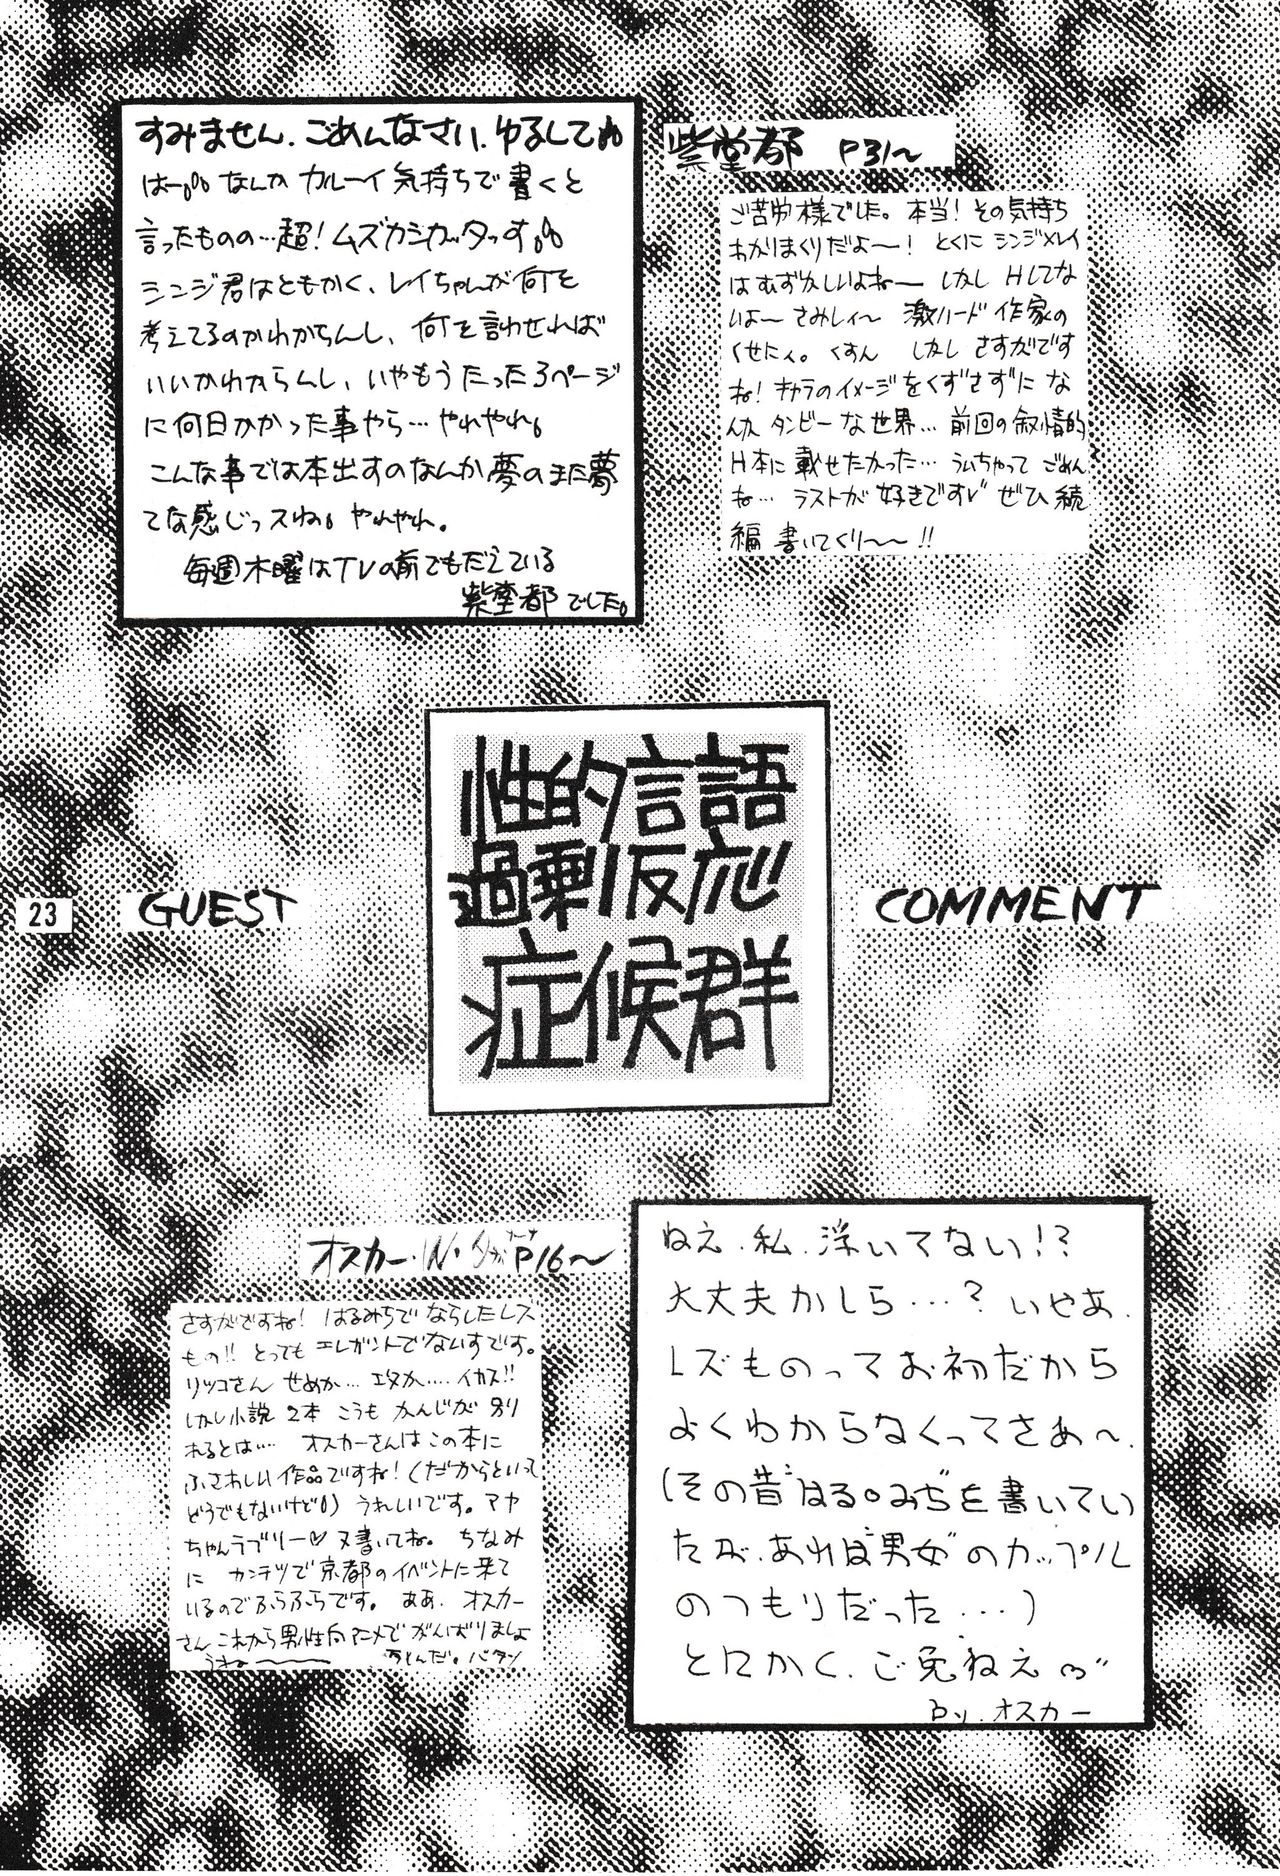 すみません、ごめんなさい、ゆるしてね
はー。なんかカルーイ気持ちで書くと
言ったものの…超！ムズカシカッタっす。
シンジ君はともかく、レイちゃんが何を
考えてるのかわからんし、何を言わせれば
いいかわからんし、いやもうたった3ページ
に何日かかった事やら…やれやれ。
こんな事では本出すのなんか夢のまた夢
てな感じっスね。やれやれ。
毎週木曜はTVの前でもだえている
紫堂都でした。
紫堂都 P31〜
ご苦労様でした。本当！その気持ち
わかりまくりだよ〜！とくにシンジ×レイ
はむずかしいよね〜しかしHしてな
いよ〜さみしィ〜 激ハード作家の
くせにィ。くすん しかしさすがです
ね！キャラのイメージをくずさずにな
んかタンビーな世界…前回の叙情的
H本に載せたかった…ういちゃってごめん
ね…ラストが好きです♥ぜひ続
編書いてくり〜〜!!
性的言語
過剰反応
症候群
23
GUEST
COMMENT
オスカー・W・ P16〜
さすがですね！はるみちでならしたレズ
もの!!とってもエレガントでないすです。
リツコさんせめか…エヌか…イカス!!
しかし小説2本こうもかんじが別
れるとは…オスカーさんはこの本に
ふさわしい作品ですね！（だからといって
どうでもないけど）うれしいです。マヤ
ちゃんラブリー♡又書いてね。ちなみ
に カンテツで京都のイベントに来て
いるのでふらふらです。ああ、オスカー
さんこれから男性向アニメでがんばりましょ
うね〜 バタン
ねえ、私、浮いてない!?
大丈夫かしら…？いやあ、
レズものってお初だから
よくわからなくってさぁ〜、
（その昔“はる○みち”を書いてい
たが、あれは“男女”のカップル
のつもりだった…）
とにかく、ご免ねえ
by.オスカー